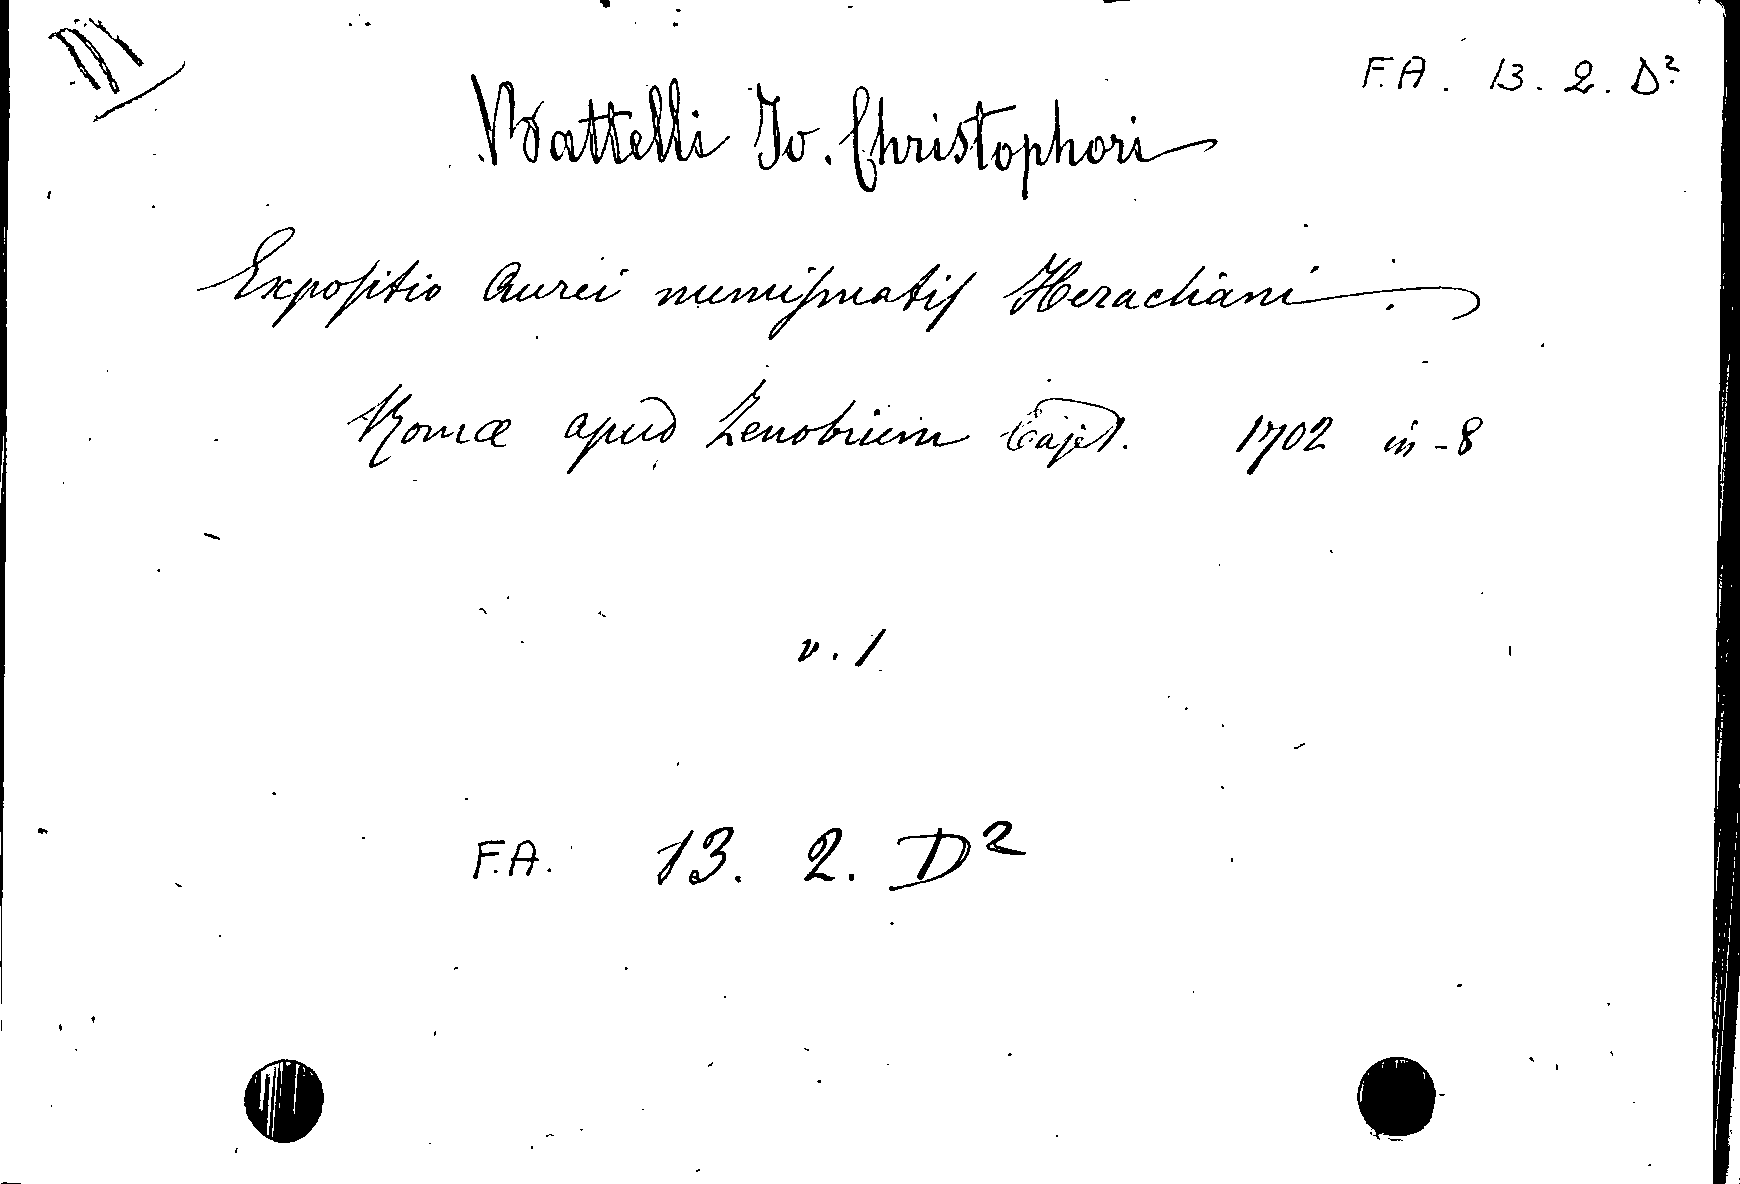 F.A. 13. 2. D²
Battelli Jo. Christophori
Expositio aurei numismatis Heracliani.
Romæ apud Zenobium Cajet. 1702 in-8
v. 1
F.A. 13. 2. D²